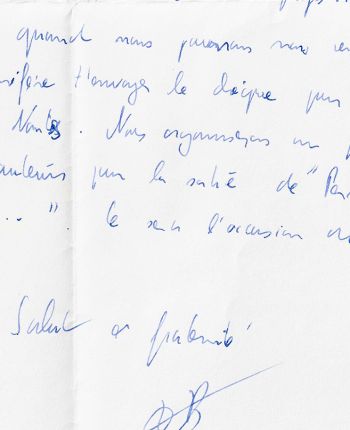 quand nous pourrons nous
t'envoyer le disque pour
Nantes. Nous organiserons un
pour la sortie de "
... ". Ce sera l'occasion
Salut et fraternité